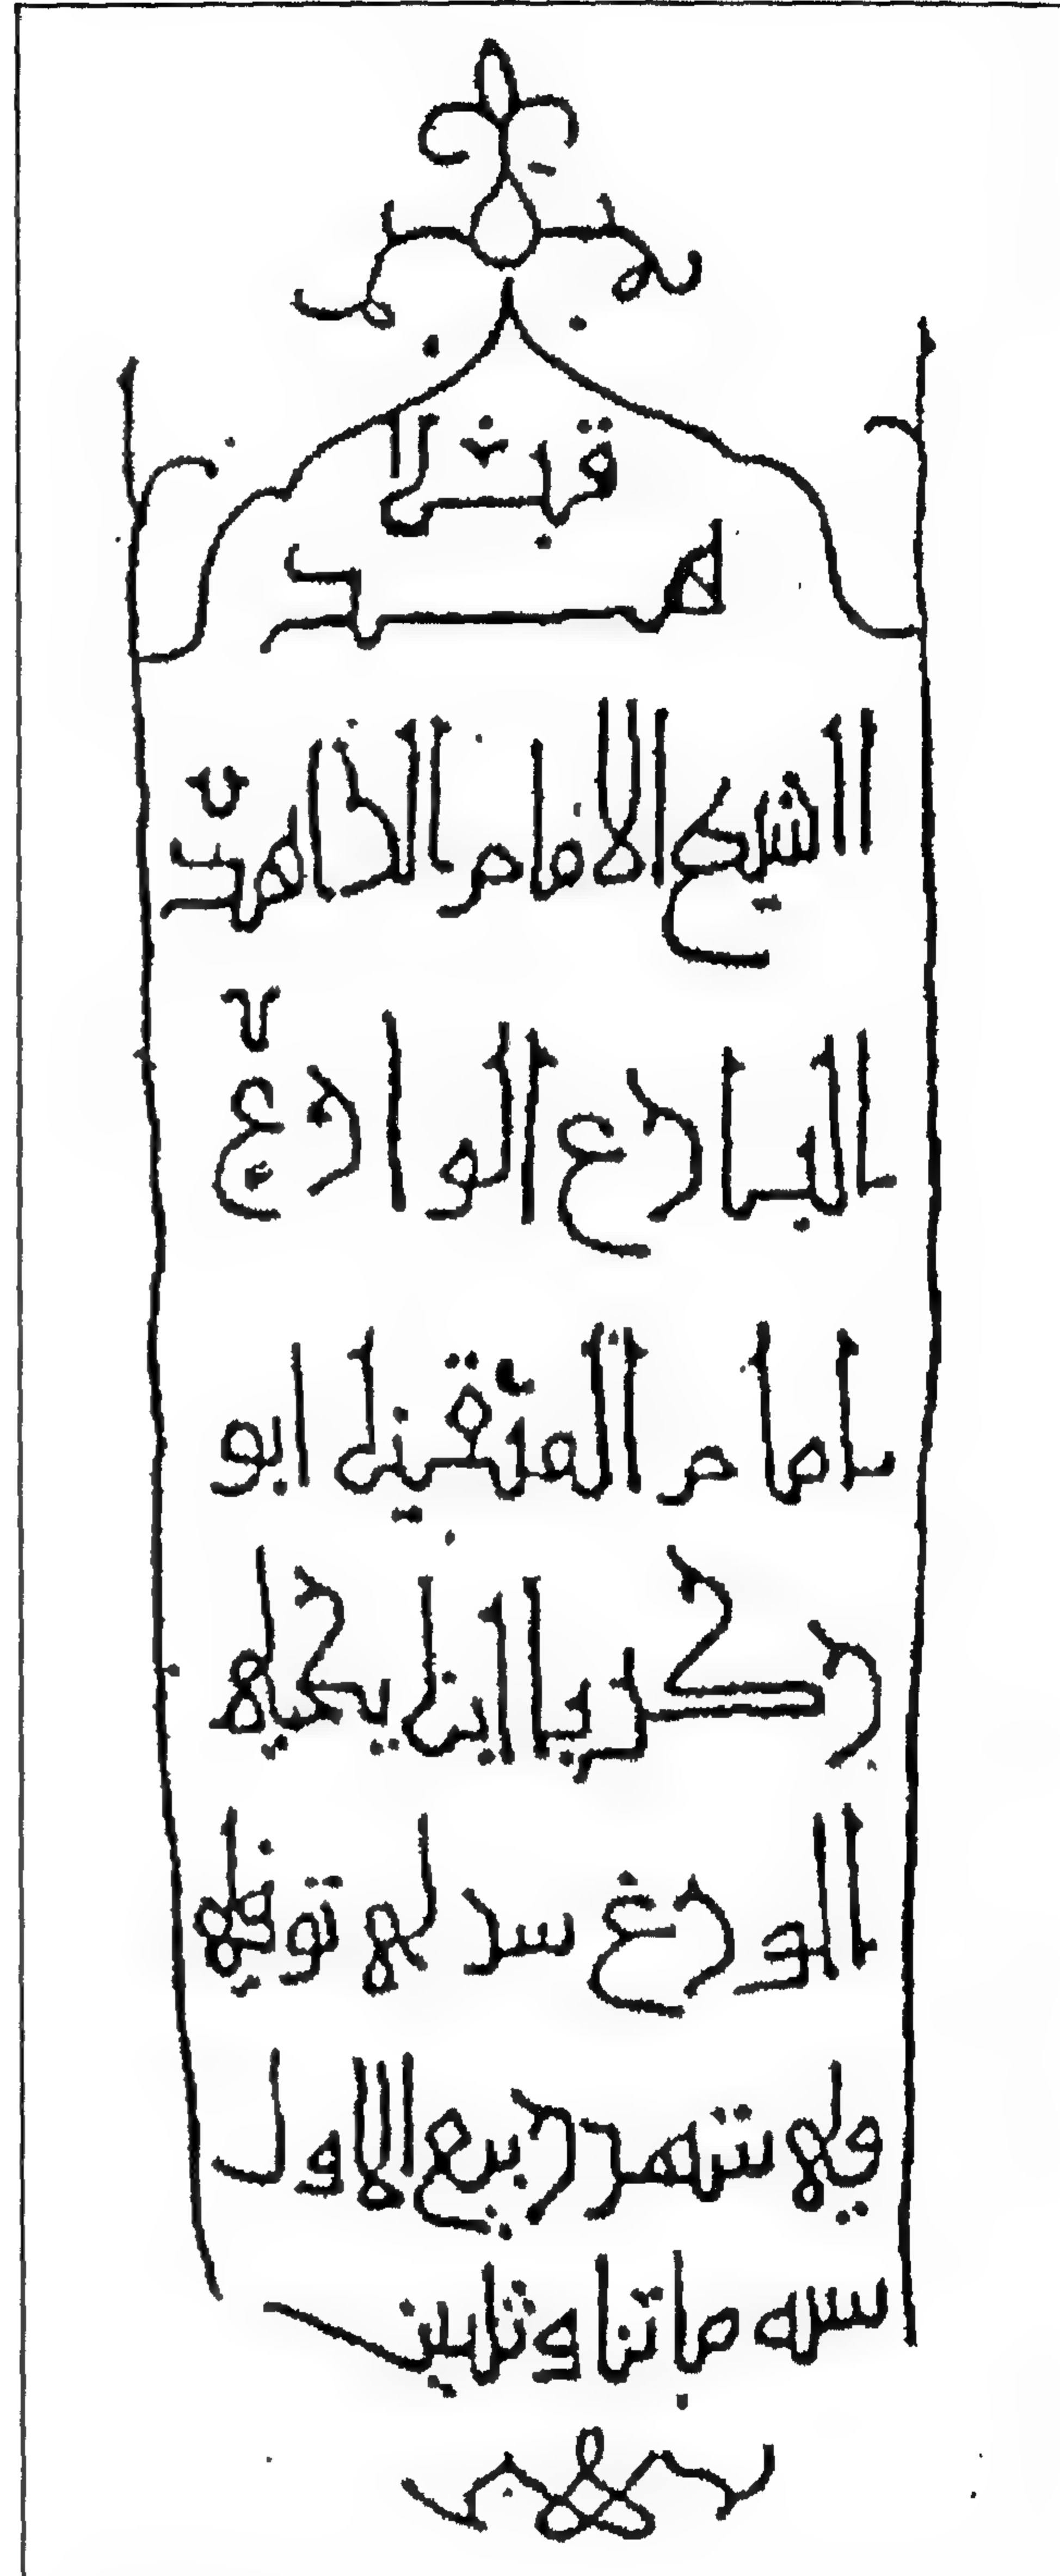 الشيخ الامام الزاهد
البارع الوارع
امام المتقين ابو
زكريا ابن يحيى
الورع توفى
في شهر ربيع الاول
سنه ماتنا وثلاثين